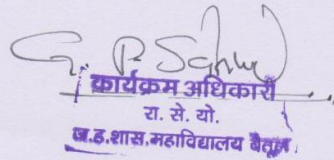 G. P. Sahu
कार्यक्रम अधिकारी
रा. से. यो.
ज.ह.शास.महाविद्यालय बैतूल